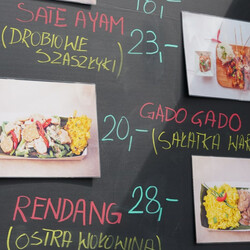 18,-
SATE AYAM 23,-
(DROBIOWE
SZASZŁYKI)
GADO GADO
20,- (SAŁATKA
RENDANG 28,-
(OSTRA WOŁOWINA)